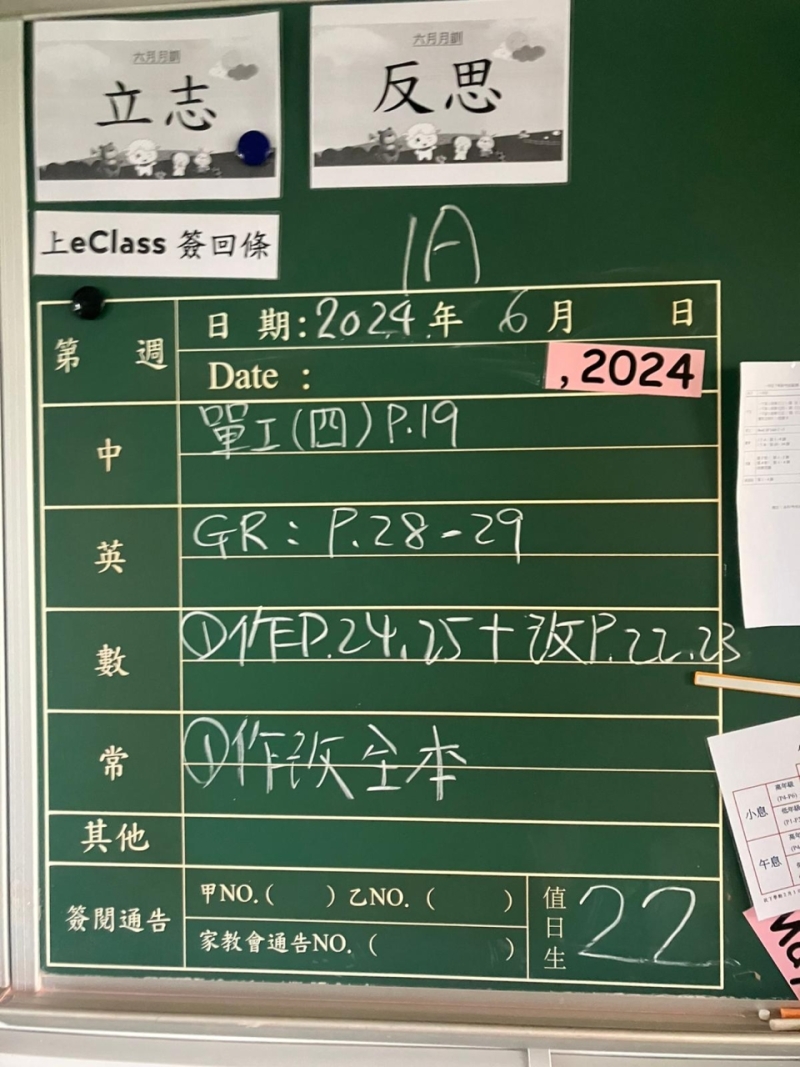 六月月訓
立志
六月月訓
反思
上eClass 簽回條
1A
第 週
日 期:2024年 6月 日
Date : , 2024
中
單工(四) P.19
英
GR: P.28-29
數
①作P.24,25+改P.22,23
常
①作改全本
其他
簽閱通告
甲NO.( ) 乙NO. ( )
家教會通告NO. ( )
值日生
22
小息
高年級
(P4-P6)
低年級
午息